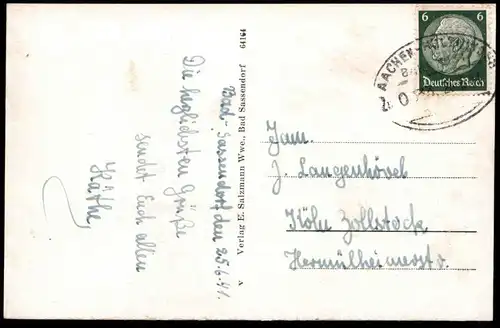 Bad-Sassendorf den 25.6.41.
Die herzlichsten Grüße
sendet Euch allen
Käthe
V Verlag E. Salzmann Wwe., Bad Sassendorf 64164
6 6
Deutsches Reich
AACHEN
Fam.
J. Langenhövel
Köln Zollstock